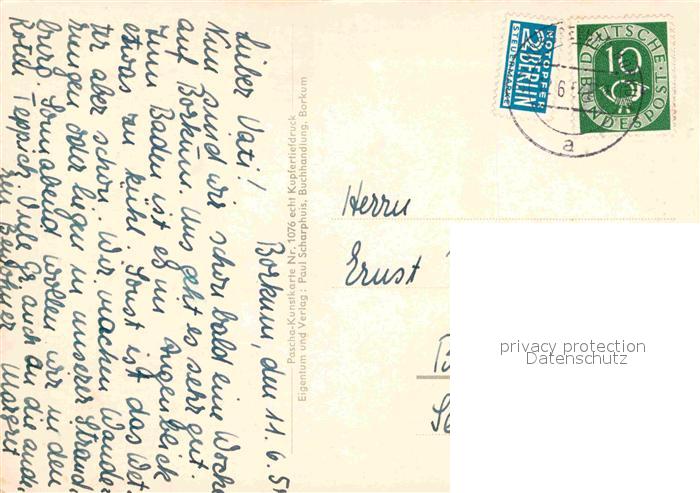 Borkum, den 11. 6. 5
Lieber Vati!
Nun sind wir schon bald eine Woche
auf Borkum. Uns geht es sehr gut.
Zum Baden ist es im Augenblick
etwas zu kühl. Sonst ist das Wet-
ter aber schön. Wir machen Wande-
rungen oder liegen in unserer Strand-
burg. Sonnabend wollen wir in den
Roten Teppich. Viele Gr. auch an die ander
Bewohner Margret
Pascha-Kunstkarte Nr. 1076 echt Kupfertiefdruck
Eigentum und Verlag: Paul Scharphuis, Buchhandlung, Borkum
NOTOPFER
2 BERLIN
STEUERMARKE
DEUTSCHE
10
BUNDESPOST
6
a
Herrn
Ernst
privacy protection
Datenschutz